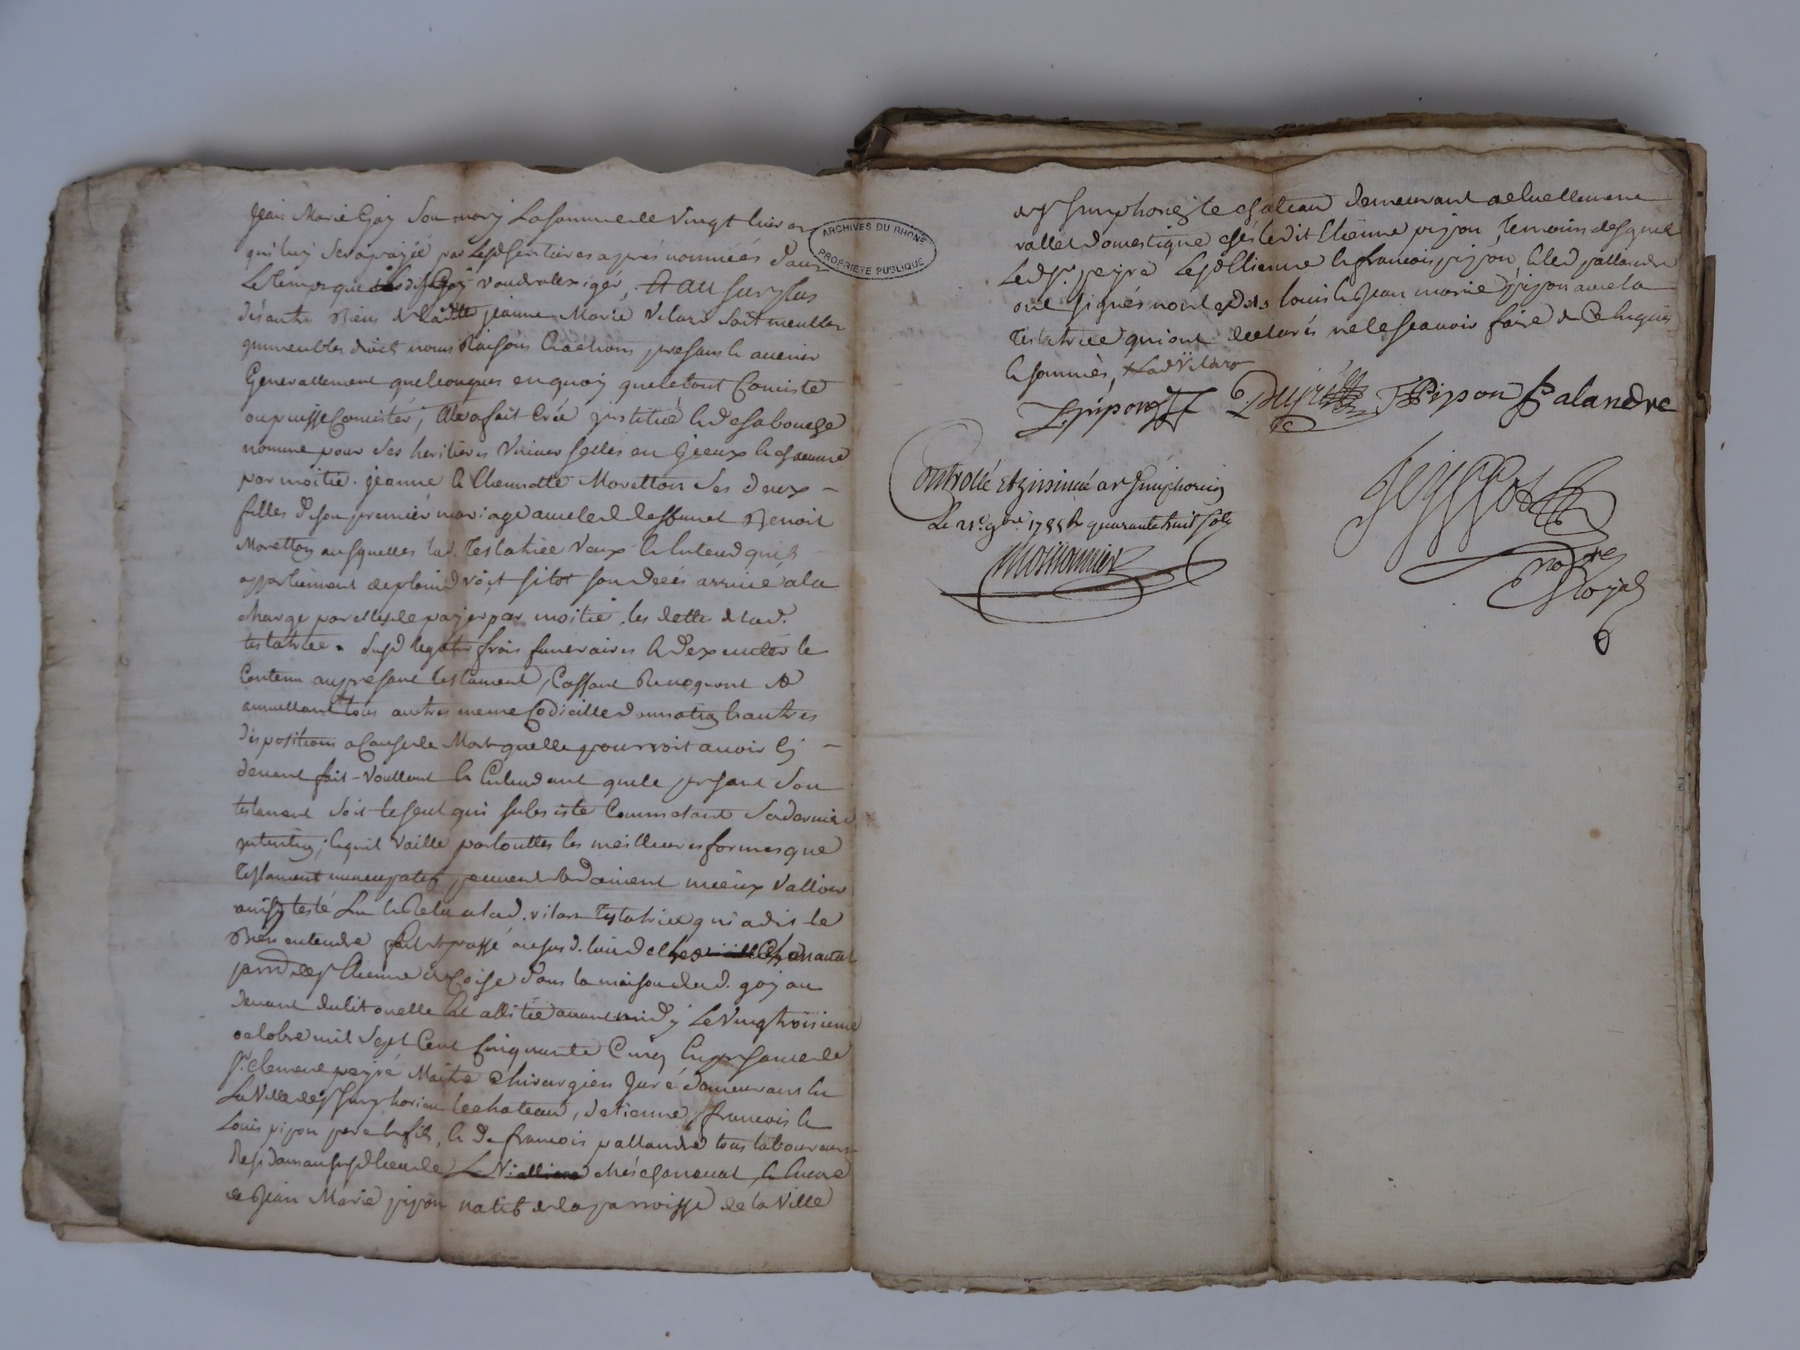 Jean Marie Goy son mary la somme de vingt livres
qui luy sera payée par lesd heritieres apres nommées dans
le temps que led Goy voudra lexiger, Et au surplus
des autres Biens de laditte jeanne Marie Vilard soit meubles
immeubles droits noms Raisons & actions presans & avenir
Generallement quelconques en quoy quele tout Consiste
ou puisse Consister, Elle a fait Créé institué & de sa bouche
nommé pour ses heritieres Universelles en Yceux & chacune
par moitié jeanne & Thennotte Moretton ses deux
filles de son premier mariage avec led deffunct Benoit
Moretton ausquelles lad. Testatrice Veux & Entend quils
appartiennent de plein droit sitot son deces arrivé a la
charge par elles de payer par moitié les dettes de lad.
testatrice susd legats frais funeraires & dexecuter le
Contenu au presant testament, Cassant Revoquant et
annullant tous autres meme Codicille donnation & autres
dispositions a Cause de Mort quelle pourroit avoir Cy
devant fait Voullant & Entendant que le presant son
testament soit le seul qui subsiste Comme étant sa derniere
intention, & quil Vaille par touttes les meilleures formes que
Testament nuncupatif peuvent & doivent mieux Valloir
ainsy testé Lu & Relu a lad. vilard Testatrice qui a dit le
Bien entendre fait & passé au susd. lieu de chez chanaval
parr de St Etienne de Coise dans la maison dud. goy au
devant du lit ou elle est allittée avant midy Le Vingtroisieme
octobre mil sept Cent Cinquante Cinq En presance de
Sr. clement peyré Maitre Chirurgien Juré demeurant en
La Ville de St Simphorien le chateau, detienne, francois &
Louis pijon pere & fils, & de francois pallandre tous laboureurs
Residans au susd lieu de chés chanaval & Encore
de Jean Marie pijon natif de la parroisse de la Ville
de St Simphorien le chateau demeurant actuellement
vallet domestique chés ledit Etienne pijon, Temoins desquels
led Sr. peyré lesd Etienne & francois pijon & led pallandre
ont signés non led. louis & Jean marie pijon avec la
Testatrice qui ont declarés ne le scavoir faire de ce Enquis
& sommés, lad Vilard
E pijon Peyré F Pijon F Palandre
Controllé Et insinué a St Simphorien
Le 21e. 9bre. 1755 R quarante huit sols
Moissonnier
ARCHIVES DU RHONE
PROPRIETE PUBLIQUE
notre
Royal